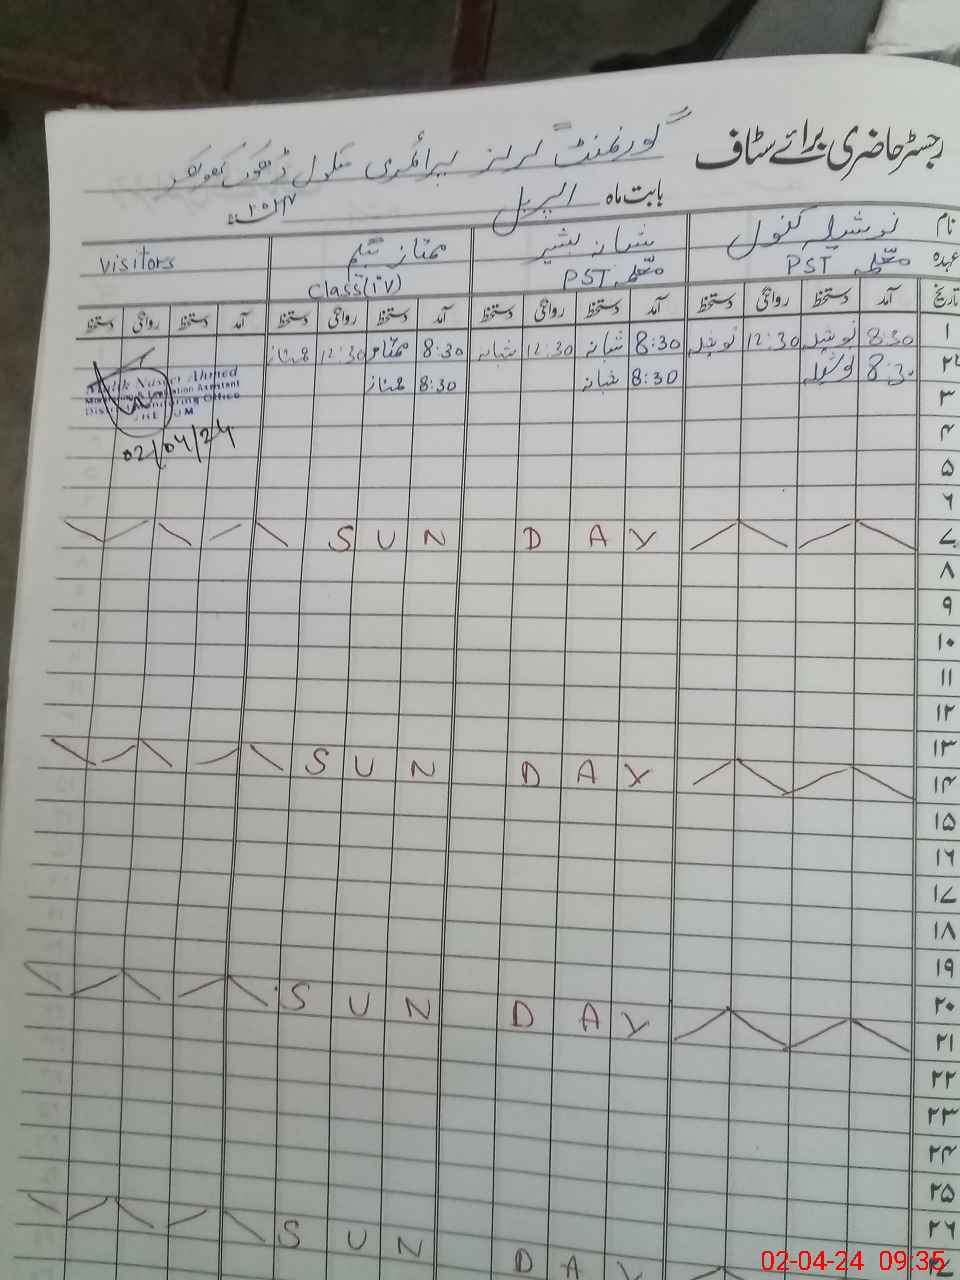 رجسٹر حاضری برائے سٹاف
گورنمنٹ گرلز پرائمری سکول
بابت ماہ اپریل ۲۰۲۴ء
نام نوشیلہ کنول شبانہ بشیر ممتاز بیگم visitors
عہدہ معلمہ PST معلمہ PST Class(iv)
تاریخ آمد دستخط روانگی دستخط آمد دستخط روانگی دستخط آمد دستخط روانگی دستخط آمد دستخط روانگی دستخط
۱ 8:30 نوشیلہ 12:30 نوشیلہ 8:30 شبانہ 12:30 شبانہ 8:30 ممتاز 12:30 ممتاز
۲ 8:30 نوشیلہ 8:30 شبانہ 8:30 ممتاز
Ahmed
Assistant
Office
02/04/24
۳
۴
۵
۶
۷ SUN DAY
۸
۹
۱۰
۱۱
۱۲
۱۳
۱۴ SUN DAY
۱۵
۱۶
۱۷
۱۸
۱۹
۲۰
۲۱ SUN DAY
۲۲
۲۳
۲۴
۲۵
۲۶
۲۷ SUN DAY
02-04-24 09:35